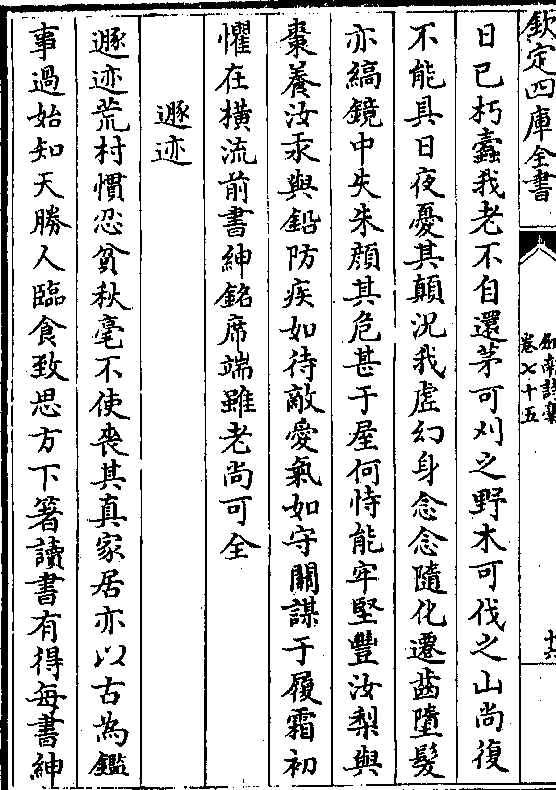 欽定四庫全書
劍南詩藁
卷七十五
十六
日已朽蠹我老不自還茅可刈之野木可伐之山尚復
不能具日夜憂其顛況我虛幻身念念隨化遷齒墮髮
亦縞鏡中失朱顔其危甚于屋何恃能牢堅豐汝梨與
棗養汝汞與鉛防疾如待敵愛氣如守關謀于履霜初
懼在橫流前書紳銘席端雖老尚可全
遯迹
遯迹荒村慣忍貧秋毫不使喪其真家居亦以古為鑑
事過始知天勝人臨食致思方下箸讀書有得每書紳